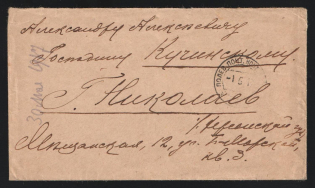 Александру Алексѣевичу
Господину Кучинскому
Г. Николаев
Херсонской
Мѣщанская, 12, уг. Б. Морской,
кв. 3.